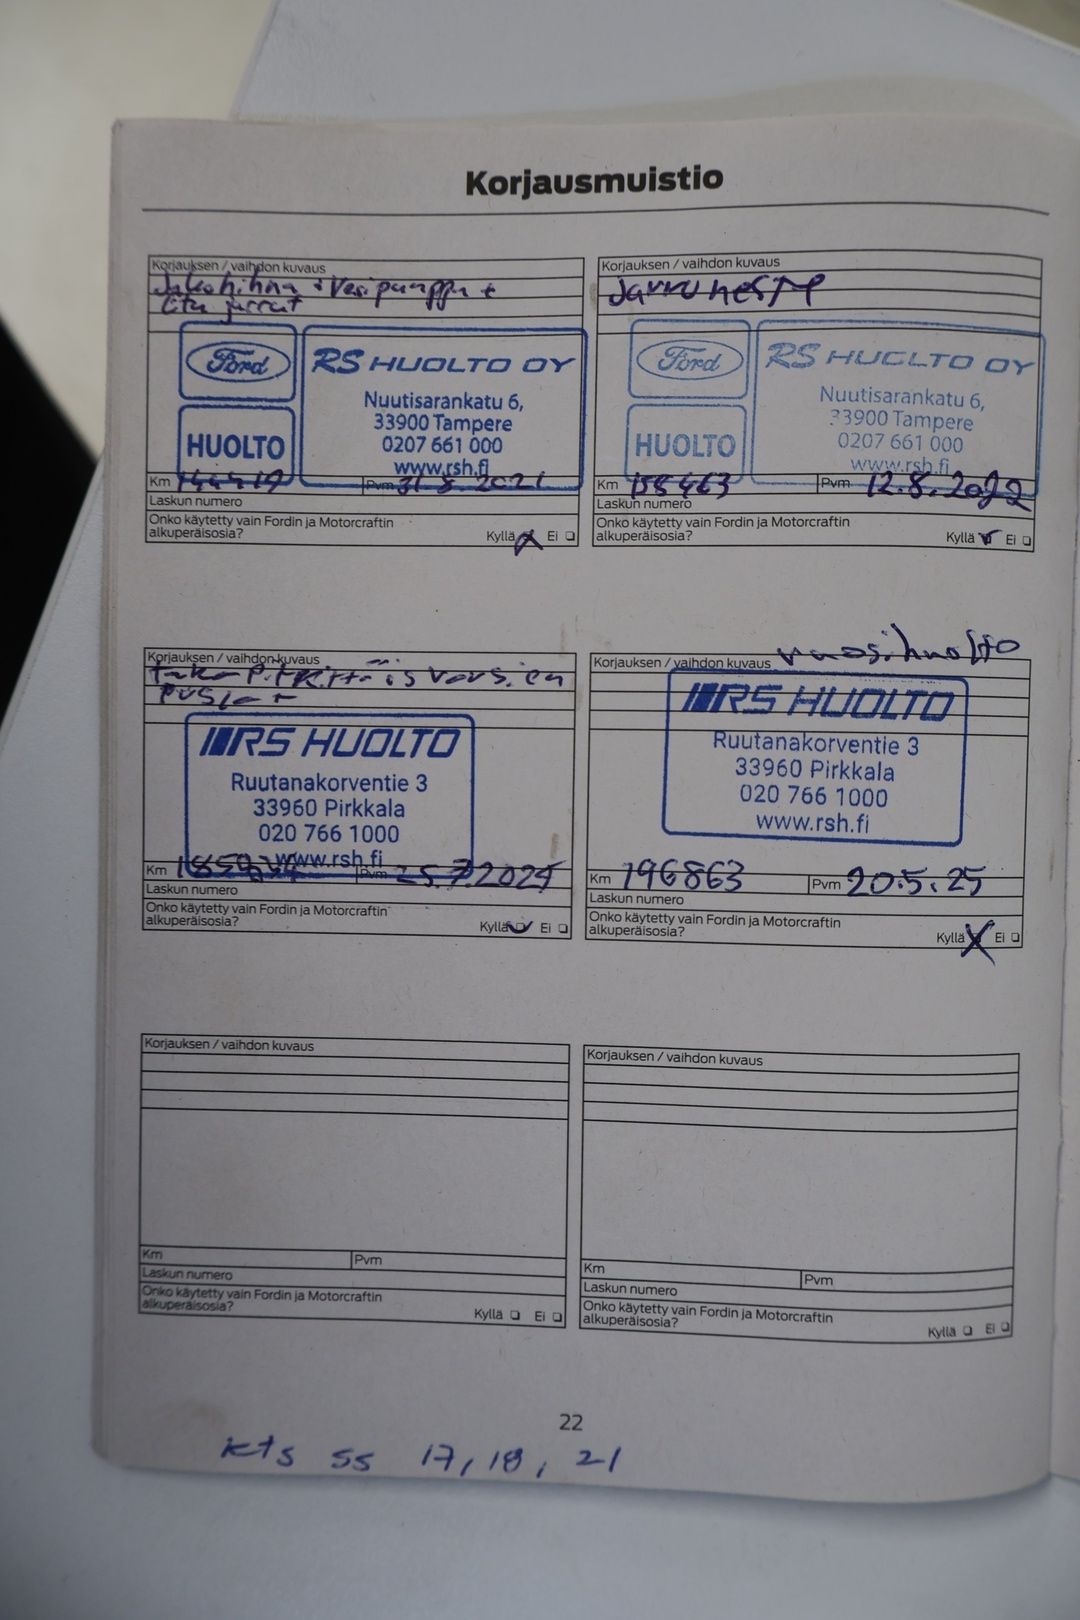 Korjausmuistio
Korjauksen / vaihdon kuvaus
Jakohihna + Vesipumppu +
Etu jarrut
Ford
HUOLTO
RS HUOLTO OY
Nuutisarankatu 6,
33900 Tampere
0207 661 000
www.rsh.fi
Km 144419 Pvm 31.8.2021
Laskun numero
Onko käytetty vain Fordin ja Motorcraftin
alkuperäisosia? Kyllä Ei
Korjauksen / vaihdon kuvaus
Jarruneste
Ford
HUOLTO
RS HUOLTO OY
Nuutisarankatu 6,
33900 Tampere
0207 661 000
www.rsh.fi
Km 158463 Pvm 12.8.2022
Laskun numero
Onko käytetty vain Fordin ja Motorcraftin
alkuperäisosia? Kyllä Ei
Korjauksen / vaihdon kuvaus
taka Pitkittäisvarsien
Puslat
RS HUOLTO
Ruutanakorventie 3
33960 Pirkkala
020 766 1000
www.rsh.fi
Km Pvm 25.7.2024
Laskun numero
Onko käytetty vain Fordin ja Motorcraftin
alkuperäisosia? Kyllä Ei
Korjauksen / vaihdon kuvaus vuosihuolto
RS HUOLTO
Ruutanakorventie 3
33960 Pirkkala
020 766 1000
www.rsh.fi
Km 196863 Pvm 20.5.25
Laskun numero
Onko käytetty vain Fordin ja Motorcraftin
alkuperäisosia? Kyllä Ei
Korjauksen / vaihdon kuvaus
Km Pvm
Laskun numero
Onko käytetty vain Fordin ja Motorcraftin
alkuperäisosia? Kyllä Ei
Korjauksen / vaihdon kuvaus
Km Pvm
Laskun numero
Onko käytetty vain Fordin ja Motorcraftin
alkuperäisosia? Kyllä Ei
22
kts ss 17, 18, 21